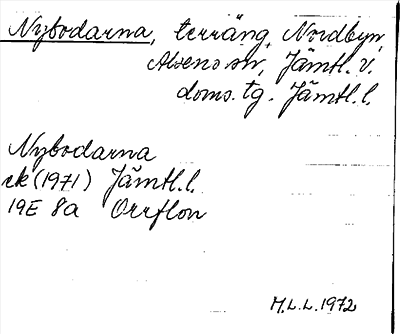 Nybodarna, terräng, Nordbyn,
Alsens sn, Jämtl. v.
doms. tg. Jämtl. l.
Nybodarna
ek (1971) Jämtl. l.
19E 8a Orrflon
M.L.L. 1972